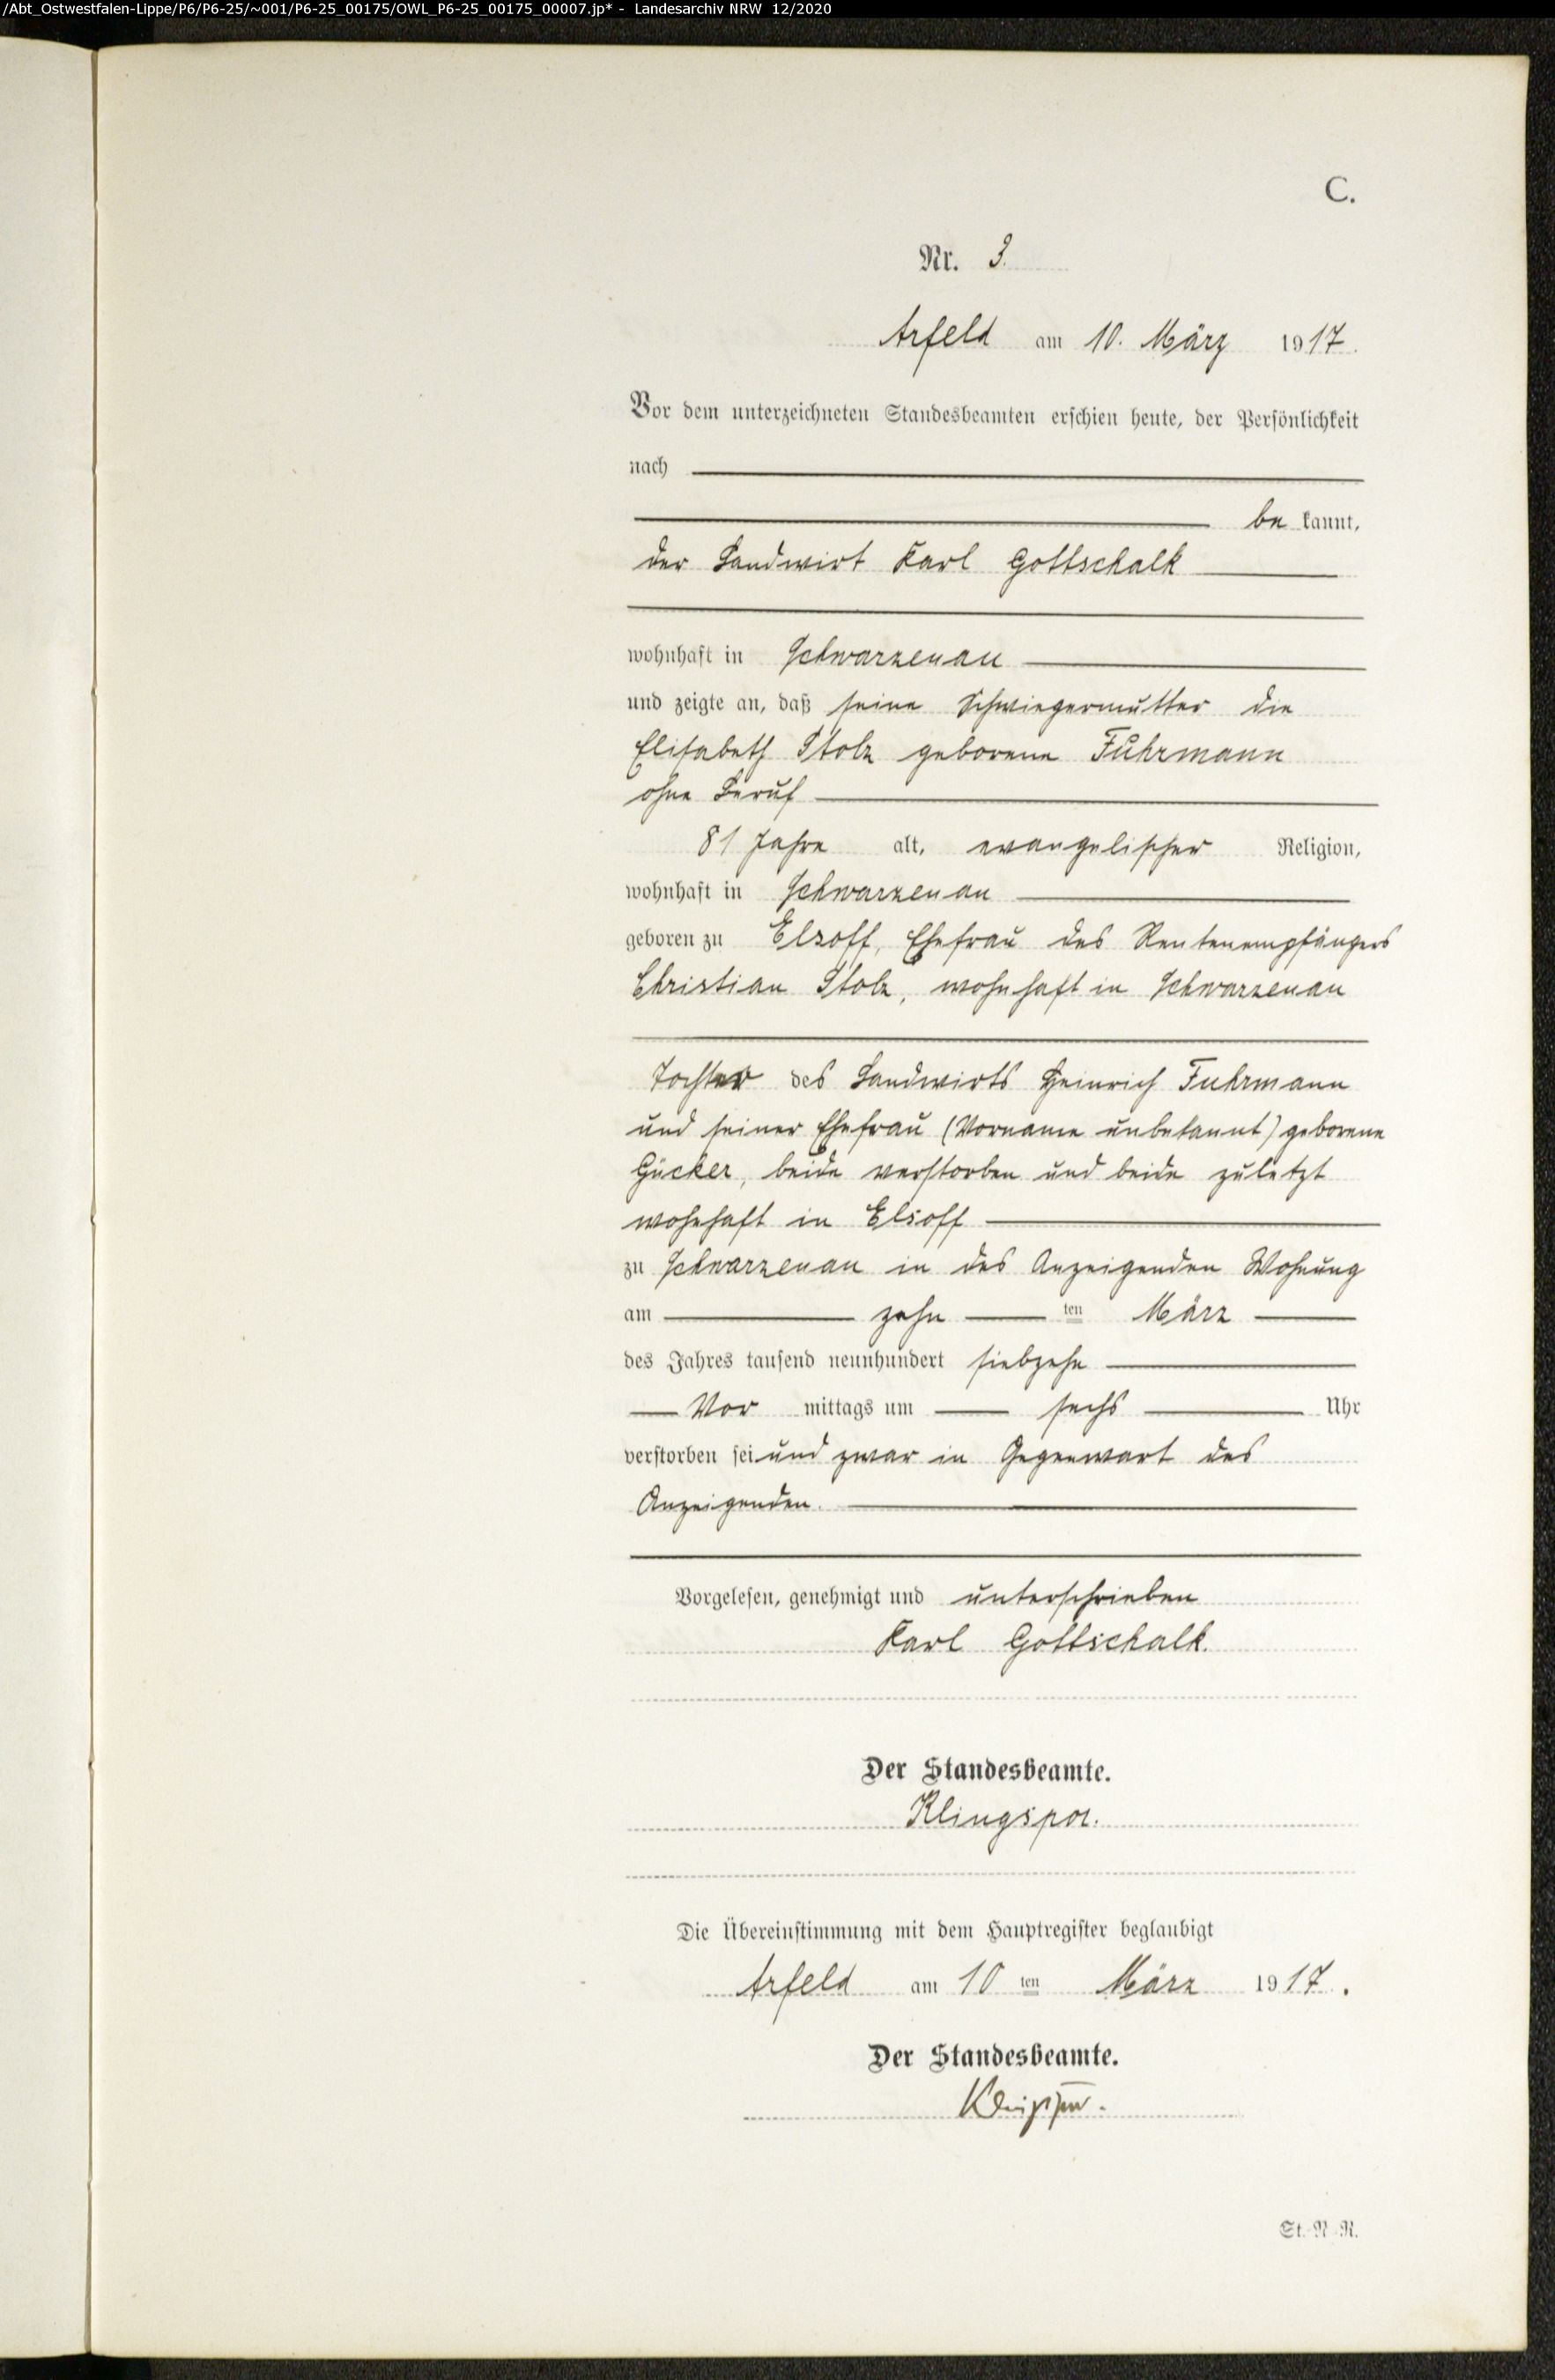 /Abt_Ostwestfalen-Lippe/P6/P6-25/~001/P6-25_00175/OWL_P6-25_00175_00007.jp* - Landesarchiv NRW 12/2020
C.
Nr. 3.
Arfeld am 10. März 1917.
Vor dem unterzeichneten Standesbeamten erschien heute, der Persönlichkeit
nach
be kannt,
der Landwirt Karl Gottschalk
wohnhaft in Schwarzenau
und zeigte an, daß seine Schwiegermutter die
Elisabeth Stolz geborene Fuhrmann
ohne Beruf
81 Jahre alt, evangelischer Religion,
wohnhaft in Schwarzenau
geboren zu Elsoff, Ehefrau des Rentenempfängers
Christian Stolz, wohnhaft in Schwarzenau
Tochter des Landwirts Heinrich Fuhrmann
und seiner Ehefrau (Vorname unbekannt) geborene
Gücker, beide verstorben und beide zuletzt
wohnhaft in Elsoff
zu Schwarzenau in des Anzeigenden Wohnung
am zehn ten März
des Jahres tausend neunhundert siebzehn
Vor mittags um sechs Uhr
verstorben sei und zwar in Gegenwart des
Anzeigenden.
Vorgelesen, genehmigt und unterschrieben
Karl Gottschalk.
Der Standesbeamte.
Klingspor.
Die Übereinstimmung mit dem Hauptregister beglaubigt
Arfeld am 10 ten März 1917.
Der Standesbeamte.
Klingspor.
St. N. R.